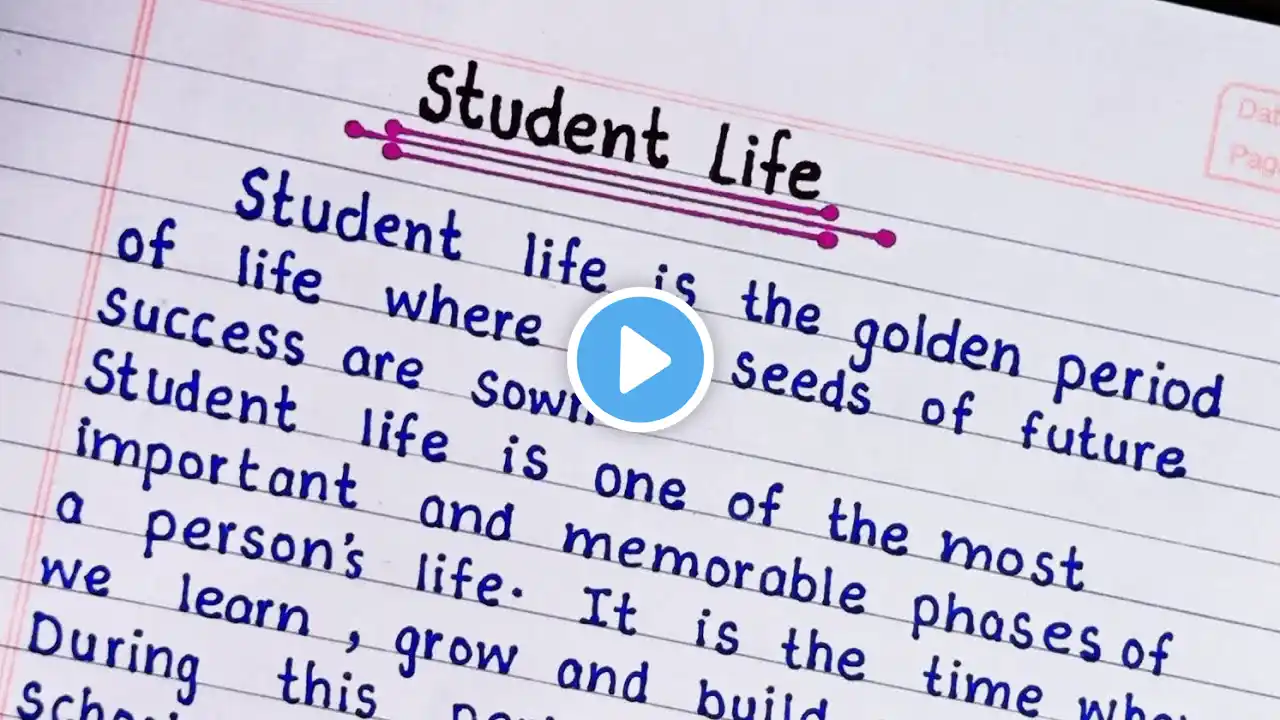 Student Life
Dat
Pag
Student life is the golden period
of life where seeds of future
success are sown
Student life is one of the most
important and memorable phases of
a person's life. It is the time whe
we learn, grow and build
During this